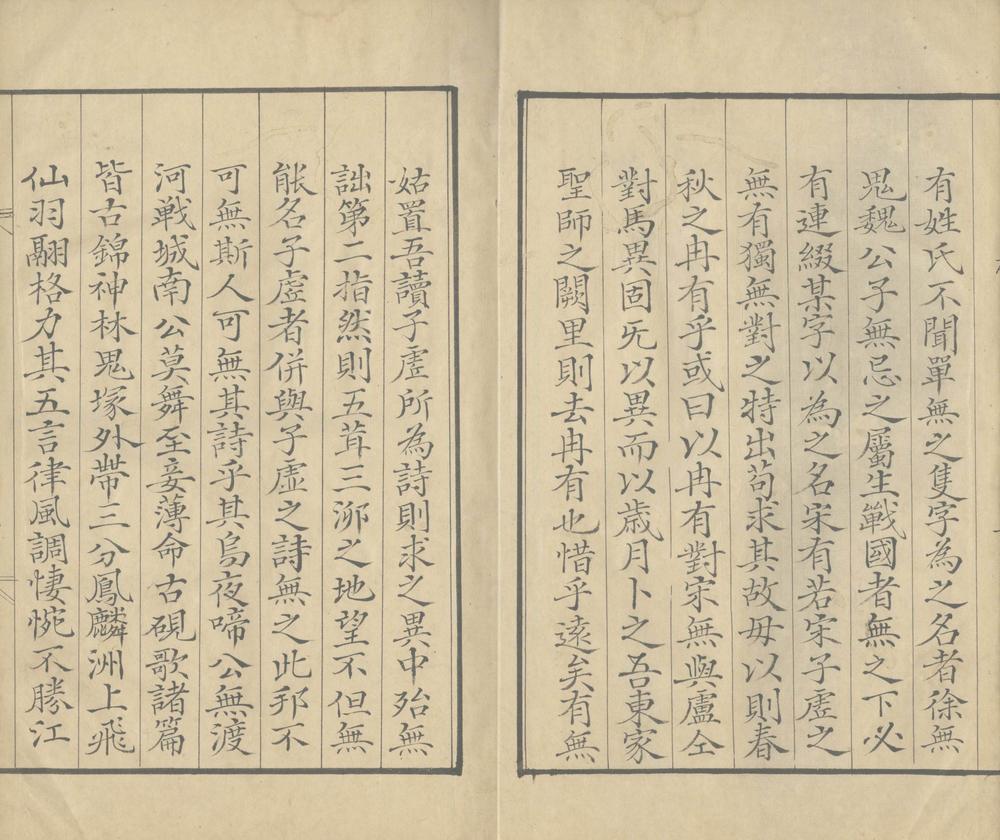 有姓氏不聞單無之隻字為之名者徐無
鬼魏公子無忌之屬生戰國者無之下必
有連綴某字以為之名宋有若宋子虛之
無有獨無對之特出苟求其故毋以則春
秋之冉有乎或曰以冉有對宋無與盧仝
對馬異固旡以異而以歲月卜之吾東家
聖師之闕里則去冉有也惜乎遠矣有無
姑置吾讀子虛所為詩則求之異中殆無
詘第二指然則五茸三泖之地望不但無
能名子虛者併與子虛之詩無之此邦不
可無斯人可無其詩乎其烏夜啼公無渡
河戰城南公莫舞至妾薄命古硯歌諸篇
皆古錦神林鬼塚外帶三分鳳麟洲上飛
仙羽翮格力其五言律風調悽惋不勝江